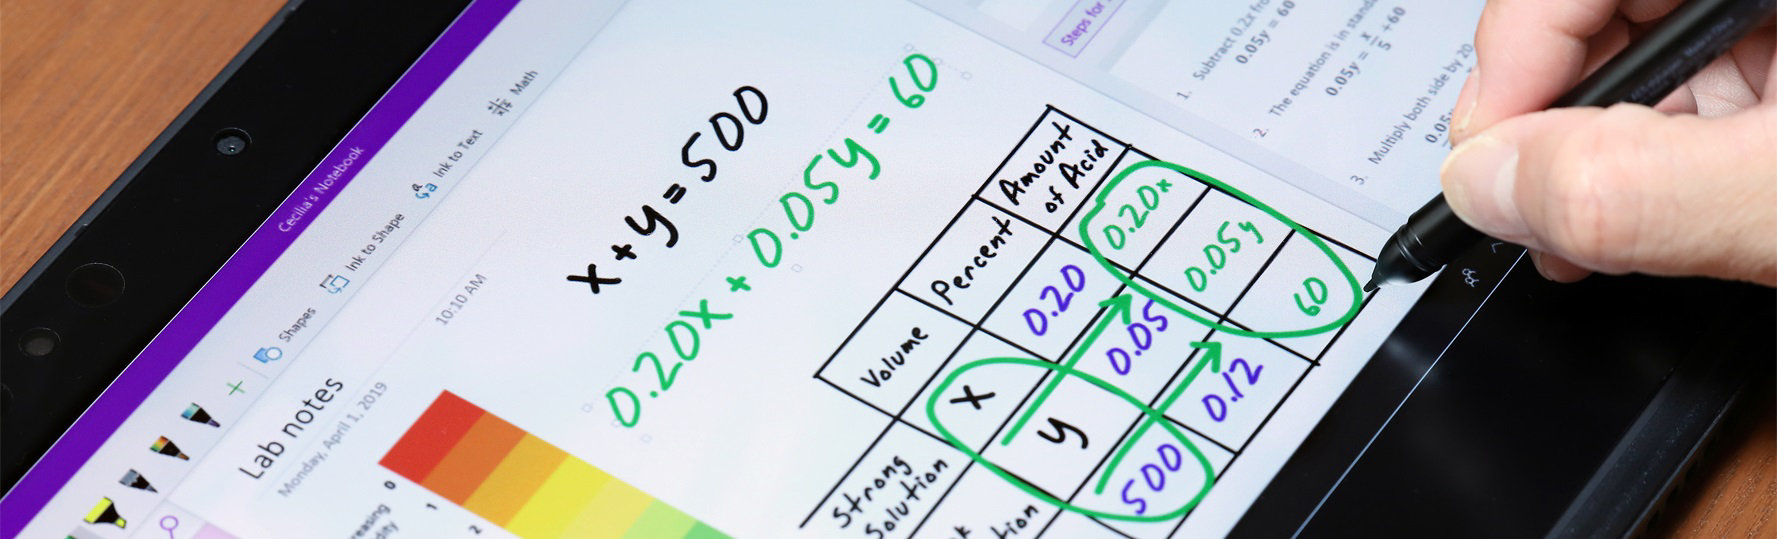 Cecilia's Notebook
Shapes
Ink to Shape
Ink to Text
Math
Lab notes
Monday, April 1, 2019
10:10 AM
0
1
2
x + y = 500
0.20x + 0.05y = 60
Volume
Percent
Amount of Acid
Strong Solution
x
0.20
0.20x
y
0.05
0.05y
500
0.12
60
Steps for
1. Subtract 0.2x
0.05y = 60
2. The equation is in
0.05y = x/5 +60
3. Multiply both side by 20